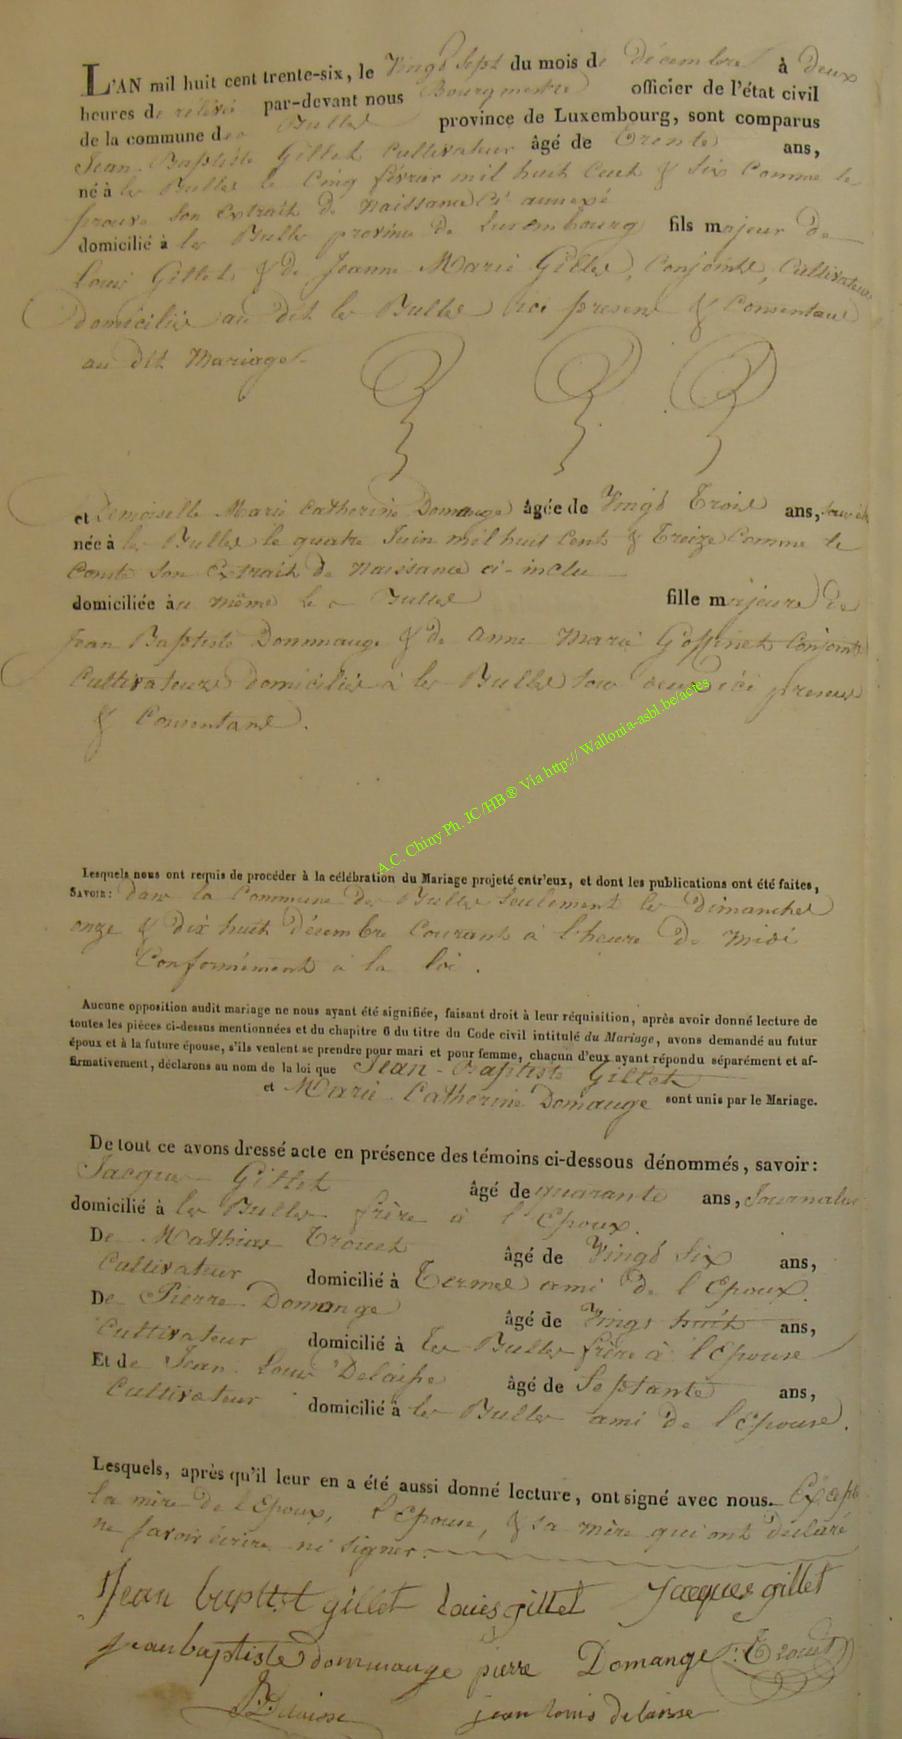 L'AN mil huit cent trente-six, le Vingt Sept du mois de décembre à deux
heures de relevée par-devant nous Bourgmestre officier de l'état civil
de la commune des Bulles province de Luxembourg, sont comparus
Jean Baptiste Gillet Cultivateur âgé de trente ans,
né à les Bulles le Cinq févrer mil huit Cent & Six Comme le
prouve Son Extrait de Naissance Ci annexé
domicilié à les Bulles province de Luxembourg fils majeur de
Louis Gillet & de Jeanne Marie Gilles, Conjoints, Cultivateurs
domiciliés au dit les Bulles ici présens & Consentans
au dit Mariage
et Demoiselle Marie Catherine Domange âgée de Vingt Trois ans,
née à les Bulles le quatre Juin mil huit Cents & Treize Comme le
Conste Son Extrait de Naissance ci-inclu
domiciliée au même les Bulles fille majeure de
Jean Baptiste Dommange & de Anne Marie Goffinet Conjoints
Cultivateurs domiciliés à les Bulles tous deux ici présens
& Consentans.
A.C. Chiny Ph. JC/HB® Via http:// Wallonia-asbl.be/actes
Lesquels nous ont requis de procéder à la célébration du Mariage projeté entr'eux, et dont les publications ont été faites,
SAVOIR: dans la Commune des Bulles Seulement les Dimanches
onze & dix huit décembre Courant à l'heure de midi
Conformément à la loi.
Aucune opposition audit mariage ne nous ayant été signifiée, faisant droit à leur réquisition, après avoir donné lecture de
toutes les pièces ci-dessus mentionnées et du chapitre 6 du titre du Code civil intitulé du Mariage, avons demandé au futur
époux et à la future épouse, s'ils veulent se prendre pour mari et pour femme, chacun d'eux ayant répondu séparément et af-
firmativement, déclarons au nom de la loi que Jean-Baptiste Gillet
et Marie Catherine Domange sont unis par le Mariage.
De tout ce avons dressé acte en présence des témoins ci-dessous dénommés, savoir:
Jacques Gillet âgé de quarante ans, Journalier
domicilié à les Bulles frère à l'Epoux.
De Mathias Trouet âgé de Vingt Six ans,
Cultivateur domicilié à Termes ami de l'Epoux.
De Pierre Domange âgé de Vingt huit ans,
Cultivateur domicilié à les Bulles frère à l'Epouse
Et de Jean Louis Delaisse âgé de Septante ans,
Cultivateur domicilié à les Bulles ami de l'Epouse.
Lesquels, après qu'il leur en a été aussi donné lecture, ont signé avec nous. Excepté
la mère de l'Epoux, l'Epouse, & sa mère qui ont déclaré
ne savoir écrire ni signer.
Jean baptist gillet louis gillet Jacques gillet
jean baptiste dommange pierre Domange Trouet
Delaisse jean louis delaisse